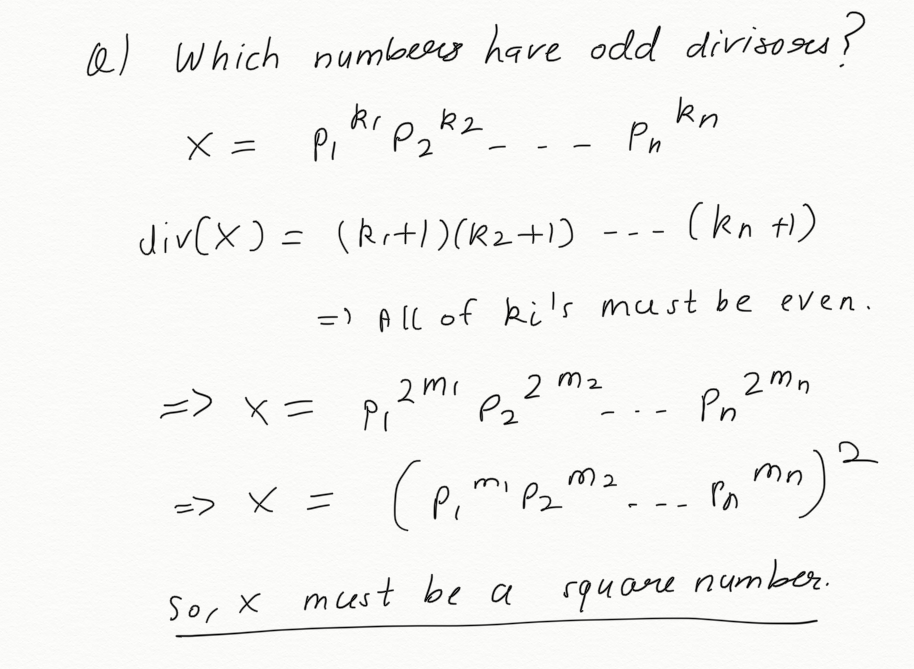 Q) Which numbers have odd divisors?
x = p₁^k₁ p₂^k₂ - - - pₙ^kₙ
div(x) = (k₁+1)(k₂+1) --- (kₙ+1)
=> All of ki's must be even.
=> x = p₁^2m₁ p₂^2m₂ - - - pₙ^2mₙ
=> x = (p₁^m₁ p₂^m₂ - - - - pₙ^mₙ)^2
so, x must be a square number.